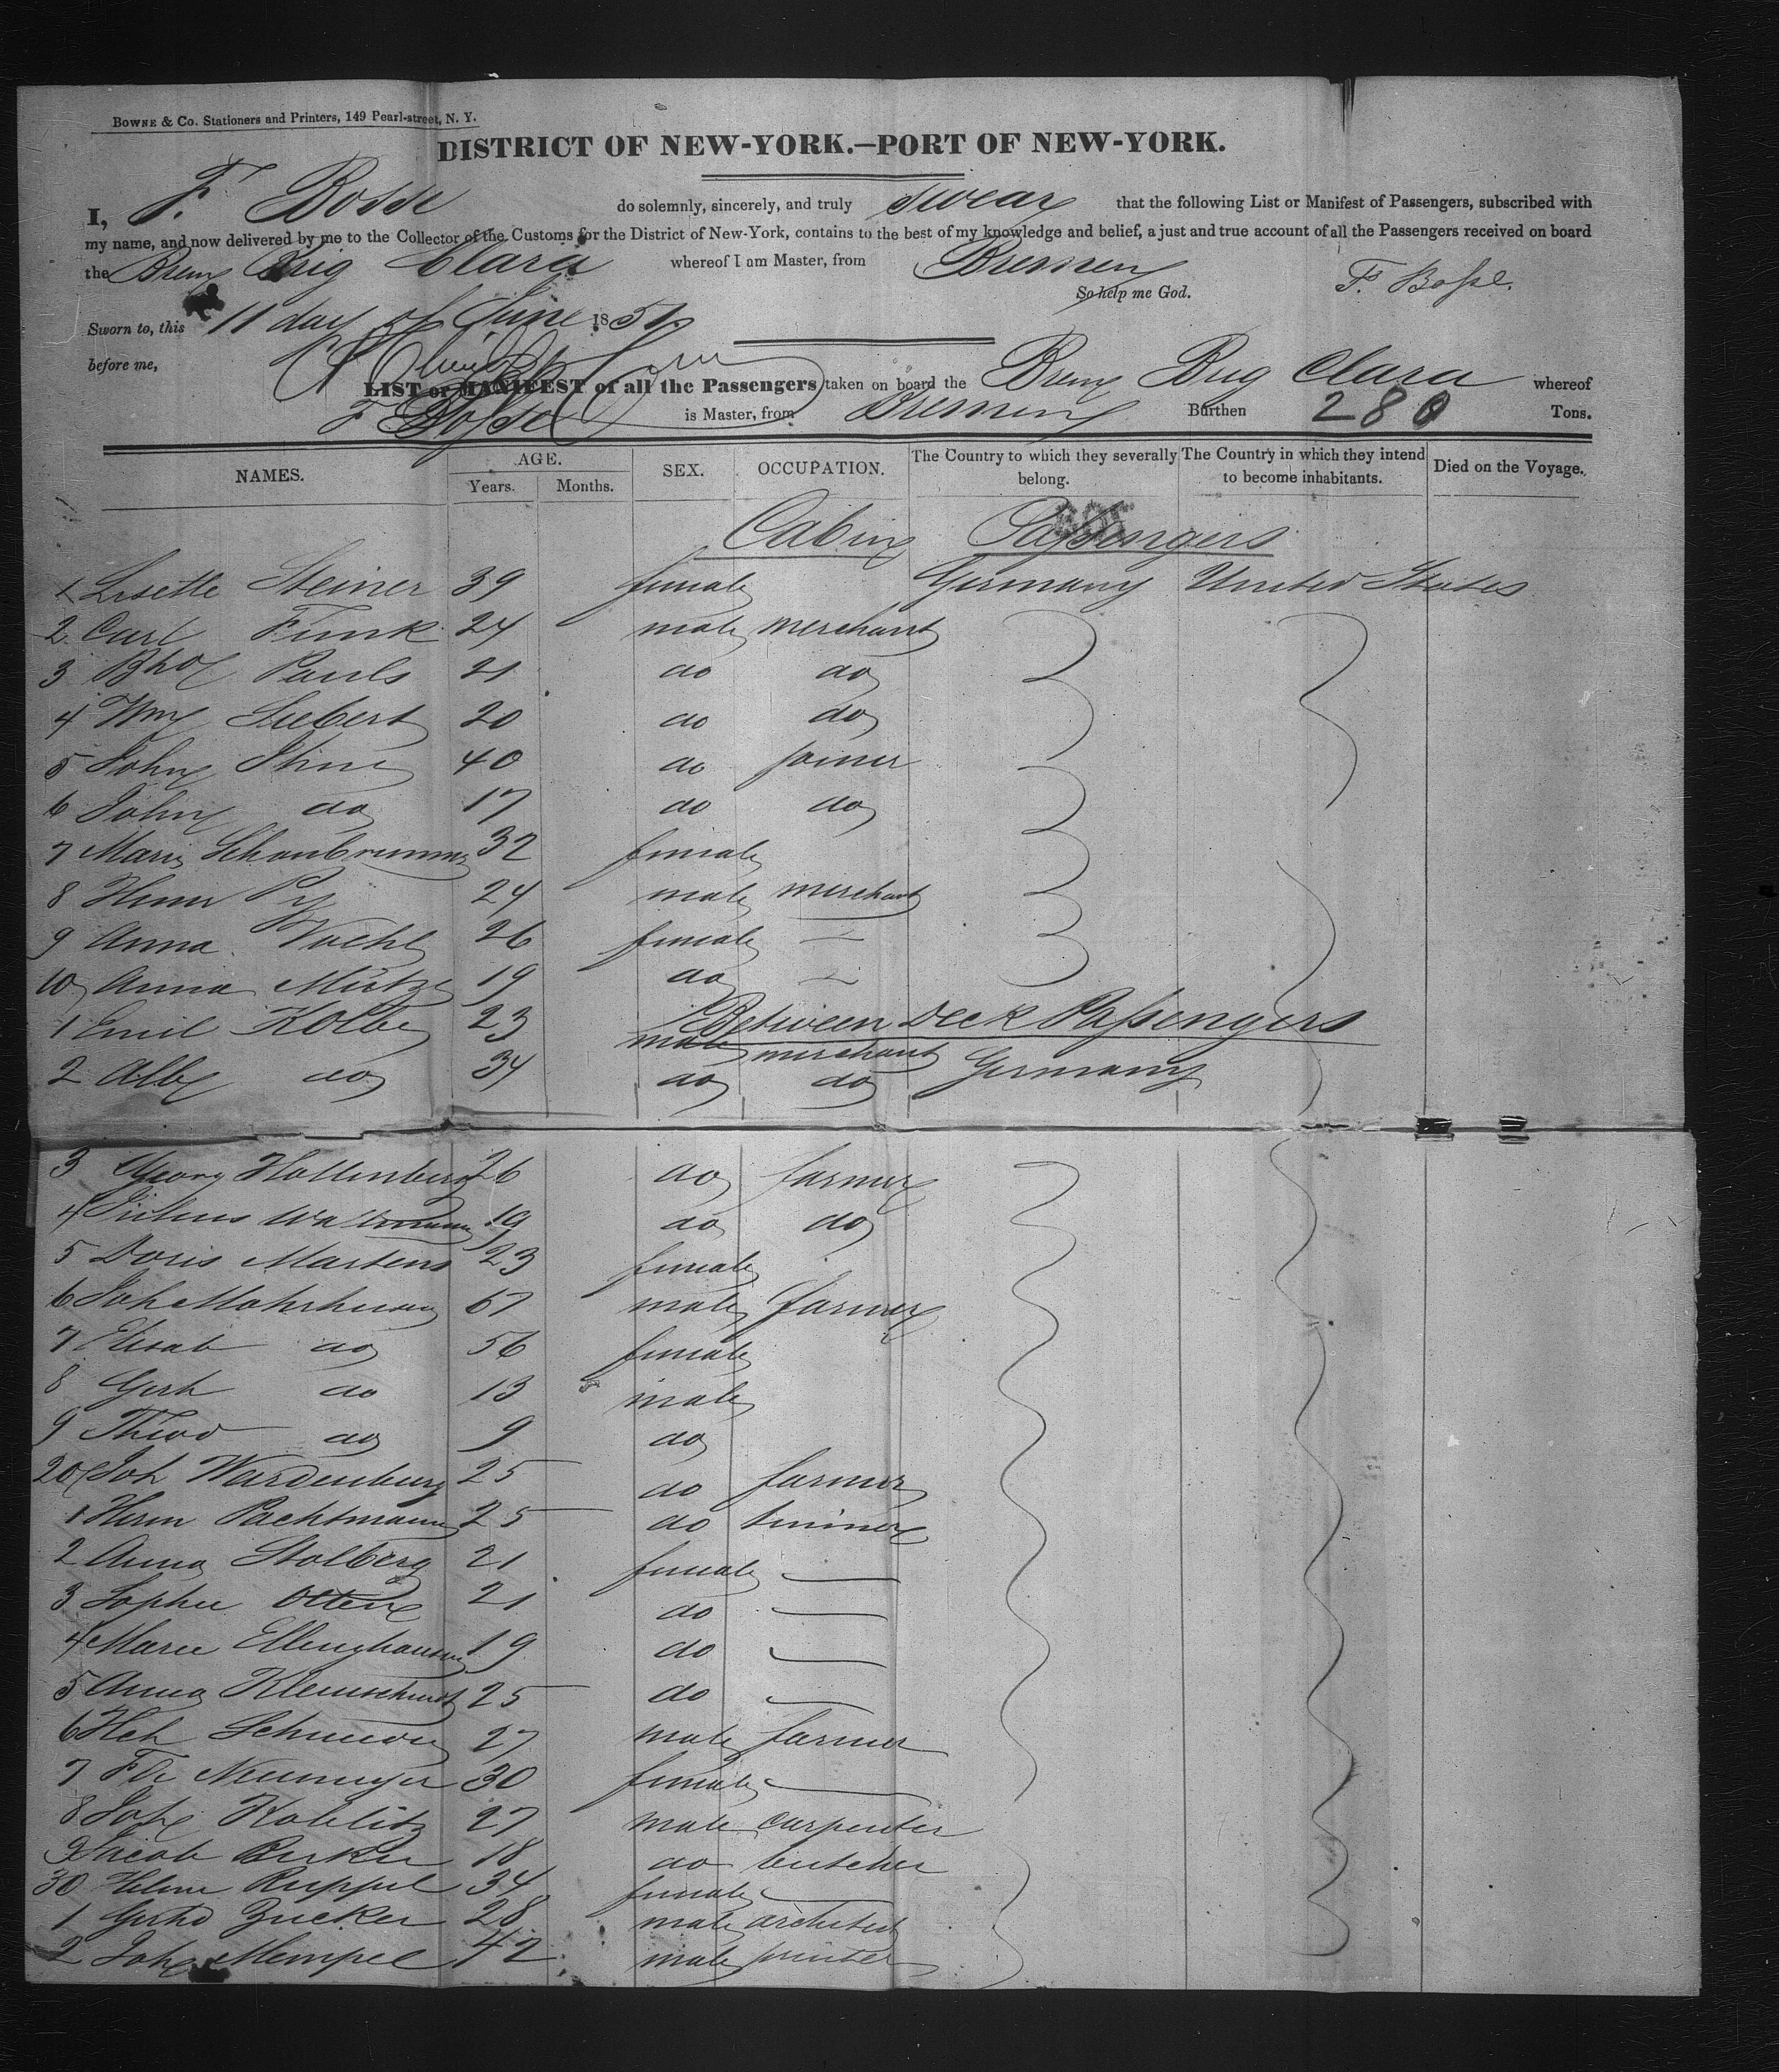 BOWNE & Co. Stationers and Printers, 149 Pearl-street, N. Y.
DISTRICT OF NEW-YORK.—PORT OF NEW-YORK.
I, F. Bosse do solemnly, sincerely, and truly swear that the following List or Manifest of Passengers, subscribed with
my name, and now delivered by me to the Collector of the Customs for the District of New-York, contains to the best of my knowledge and belief, a just and true account of all the Passengers received on board
the Brem Brig Clara whereof I am Master, from Bremen
So help me God. F. Bosse.
Sworn to, this 11 day of June 1851.
before me,
LIST or MANIFEST of all the Passengers taken on board the Brem Brig Clara whereof
F Bosse is Master, from Bremen Burthen 280 Tons.
NAMES. AGE. Years. Months. SEX. OCCUPATION. The Country to which they severally belong. The Country in which they intend to become inhabitants. Died on the Voyage.
Cabin Passengers
1 Lisette Steiner 39 female Germany United States
2 Carl Funk 24 male merchant
3 Pauls 21 do do
4 Wm Siebert 20 do do
5 John 40 do joiner
6 John do 17 do do
7 Marie Schonbrunner 32 female
8 24 male merchant
9 Anna 26 female —
10 Anna 19 do —
Between Deck Passengers
1 Emil Kolbe 23 male merchant Germany
2 Alb do 34 do do
3 Georg Hollenberg 26 do farmer
4 Julius 19 do do
5 Doris Martens 23 female
6 Joh 67 male farmer
7 Elisab do 56 female
8 Gerh do 13 male
9 Theod do 9 do
20 Joh Wardenburg 25 do farmer
1 Herm Pachtmann 25 do
2 Anna Stolberg 21 female —
3 Sophie Otten 21 do —
4 Marie Ellinghausen 19 do —
5 Anna 25 do —
6 Hch 27 male farmer
7 Neumeyer 30 female —
8 Joh 27 male carpenter
9 Jacob 18 do butcher
30 Helene Ruppel 34 female —
1 Gerhd Zucker 28 male architect
2 Joh Mempel 42 male printer